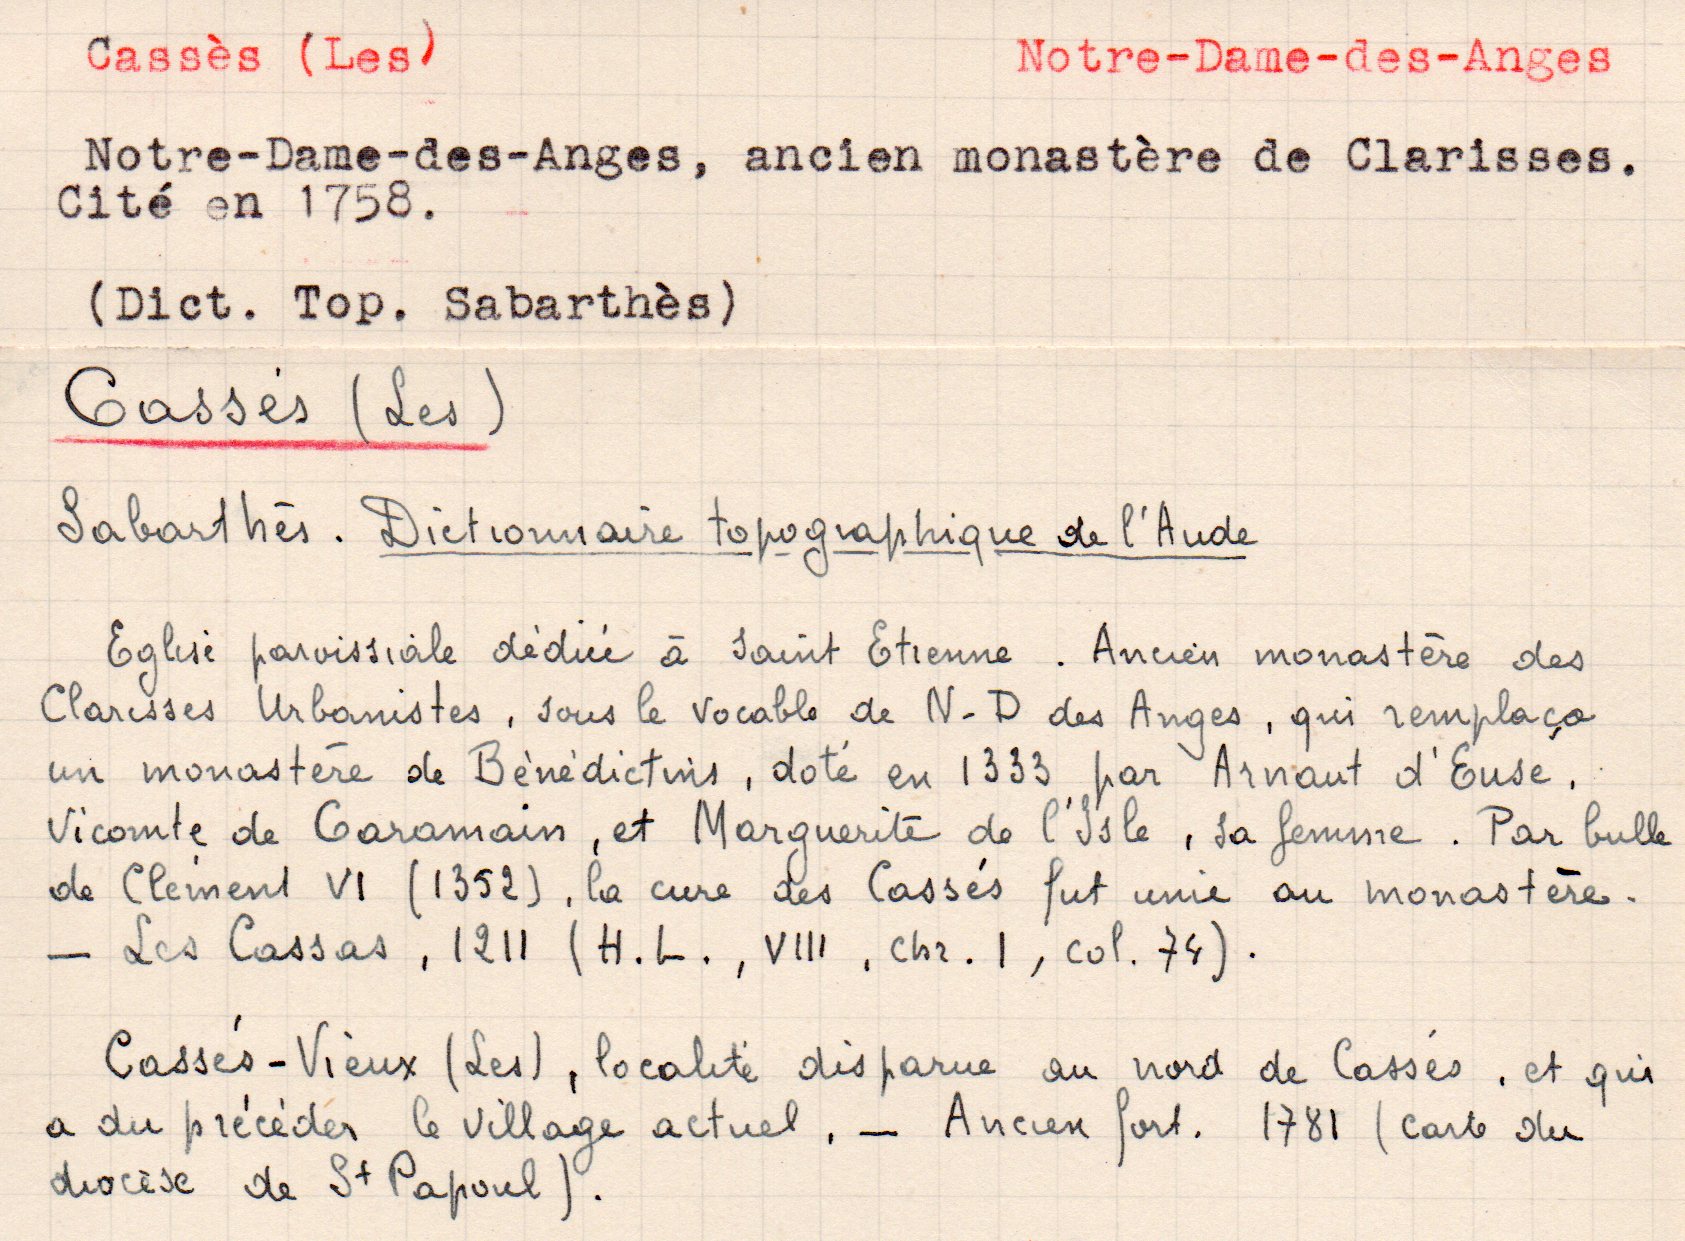 Cassès (Les) Notre-Dame-des-Anges
Notre-Dame-des-Anges, ancien monastère de Clarisses.
Cité en 1758.
(Dict. Top. Sabarthès)
Cassés (Les)
Sabarthès. Dictionnaire topographique de l'Aude
Eglise paroissiale dédiée à Saint Etienne. Ancien monastère des
Clarisses Urbanistes, sous le vocable de N-D des Anges, qui remplaça
un monastère de Bénédictins, doté en 1333 par Arnaut d'Euse,
Vicomte de Caramain, et Marguerite de l'Isle, sa femme. Par bulle
de Clément VI (1352), la cure des Cassés fut unie au monastère.
— Les Cassas, 1211 (H.L., VIII, chr. 1, col. 74).
Cassés-Vieux (Les), localité disparue au nord de Cassés, et qui
a du précéder le village actuel. — Ancien fort. 1781 (carte du
diocèse de St Papoul).